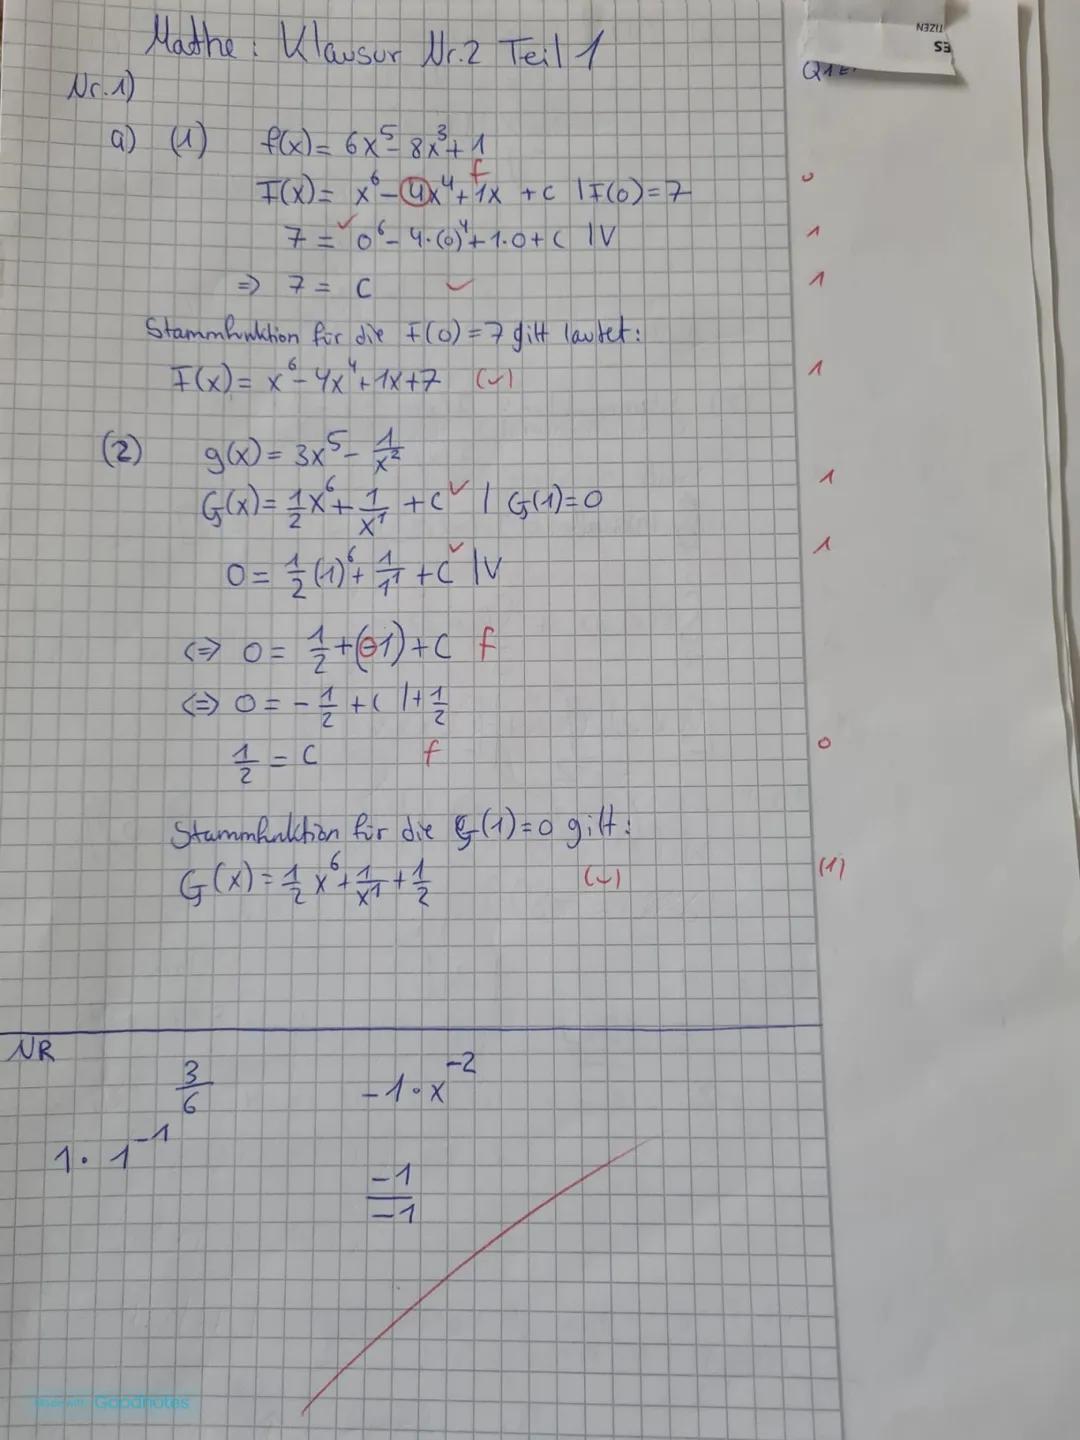 Mathe: Klausur Nr.2 Teil 1
NƐZIT
ES
Nr.1)
a) (1) f(x) = 6x⁵ - 8x³ + 1
f
F(x) = x⁶ - 4x⁴ + 1x + c | F(0) = 7
0
7 = 0⁶ - 4·(0)⁴ + 1·0 + c | V
1
=> 7 = c
1
Stammfunktion für die F(0) = 7 gilt lautet:
F(x) = x⁶ - 4x⁴ + 1x + 7 (✓)
1
(2) g(x) = 3x⁵ - 1/x²
G(x) = 1/2 x⁶ + 1/x¹ + c ✓ | G(1) = 0
1
0 = 1/2 (1)⁶ + 1/1¹ + c ✓ | V
1
<=> 0 = 1/2 + (-1) + c f
<=> 0 = - 1/2 + c | + 1/2
1/2 = c f
0
Stammfunktion für die G(1) = 0 gilt:
G(x) = 1/2 x⁶ + 1/x¹ + 1/2 (✓)
(1)
NR
3/6
-1·x⁻²
1·1⁻¹
-1/-1
Made with Goodnotes